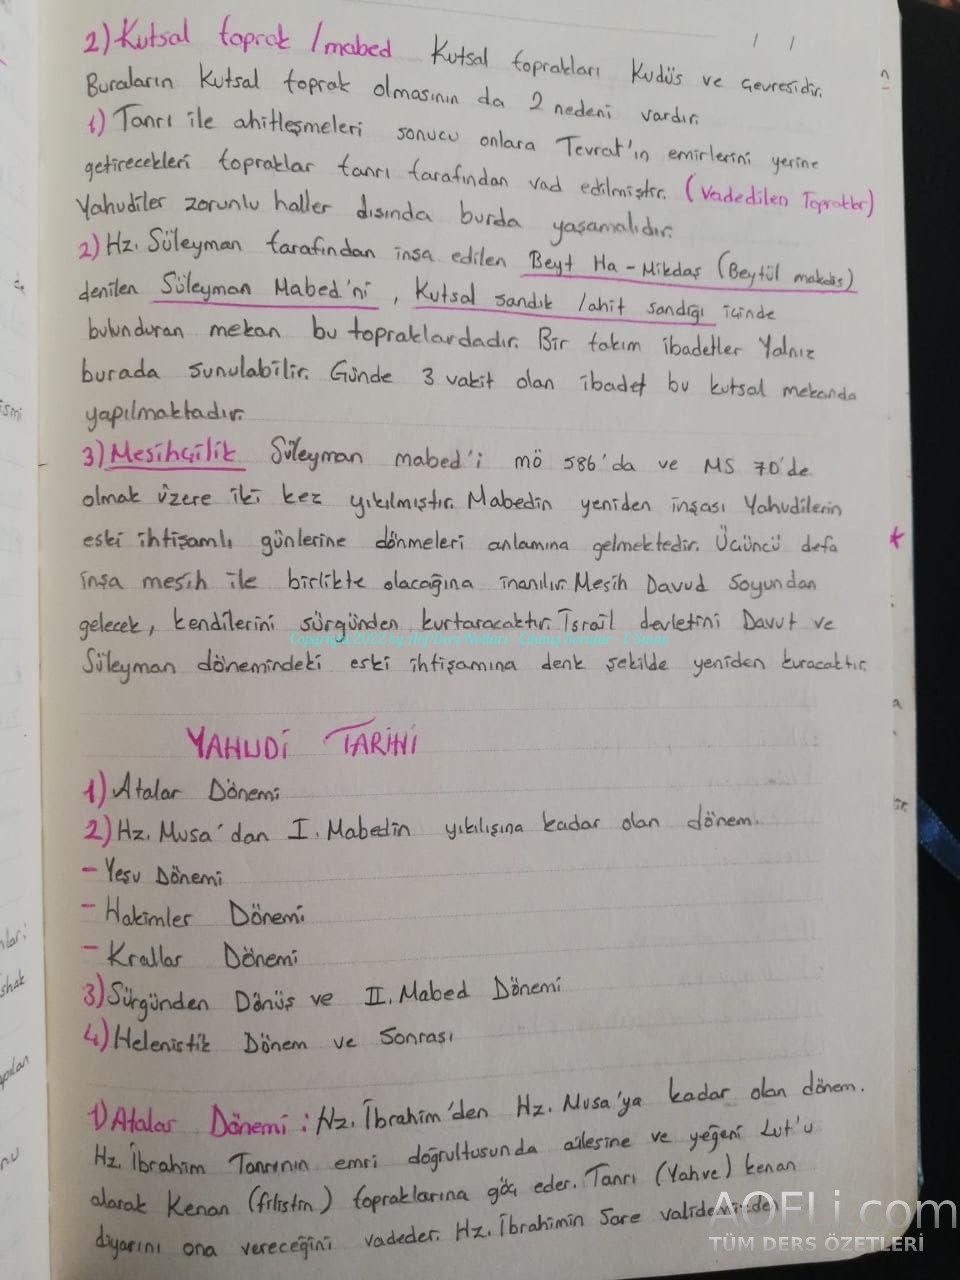 2) Kutsal toprak / mabed Kutsal toprakları Kudüs ve çevresidir.
Buraların Kutsal toprak olmasının da 2 nedeni vardır.
1) Tanrı ile ahitleşmeleri sonucu onlara Tevrat'ın emirlerini yerine
getirecekleri topraklar tanrı tarafından vad edilmiştir. (Vadedilen Topraklar)
Yahudiler zorunlu haller dışında burda yaşamalıdır.
2) Hz. Süleyman tarafından inşa edilen Beyt Ha-Mikdaş (Beytül makdis)
denilen Süleyman Mabed'ni, Kutsal sandık / ahit sandığı içinde
bulunduran mekan bu topraklardadır. Bir takım ibadetler Yalnız
burada sunulabilir. Günde 3 vakit olan ibadet bu kutsal mekanda
yapılmaktadır.
3) Mesihçilik Süleyman mabed'i mö 586'da ve MS 70'de
olmak üzere iki kez yıkılmıştır. Mabedin yeniden inşası Yahudilerin
eski ihtişamlı günlerine dönmeleri anlamına gelmektedir. Üçüncü defa
inşa mesih ile birlikte olacağına inanılır. Mesih Davud Soyundan
gelecek, kendilerini sürgünden kurtaracaktır. İsrail devletini Davut ve
Süleyman dönemindeki eski ihtişamına denk şekilde yeniden kuracaktır.
YAHUDİ TARİHİ
1) Atalar Dönemi
2) Hz. Musa'dan I. Mabedin yıkılışına kadar olan dönem.
- Yeşu Dönemi
- Hakimler Dönemi
- Krallar Dönemi
3) Sürgünden Dönüş ve II. Mabed Dönemi
4) Helenistik Dönem ve Sonrası
1) Atalar Dönemi: Hz. İbrahim'den Hz. Musa'ya kadar olan dönem.
Hz. İbrahim Tanrının emri doğrultusunda ailesine ve yeğeni Lut'u
alarak Kenan (filistin) topraklarına göç eder. Tanrı (Yahve) kenan
diyarını ona vereceğini vadeder. Hz. İbrahimin Sare validemizden
AOFLi.com
TÜM DERS ÖZETLERİ